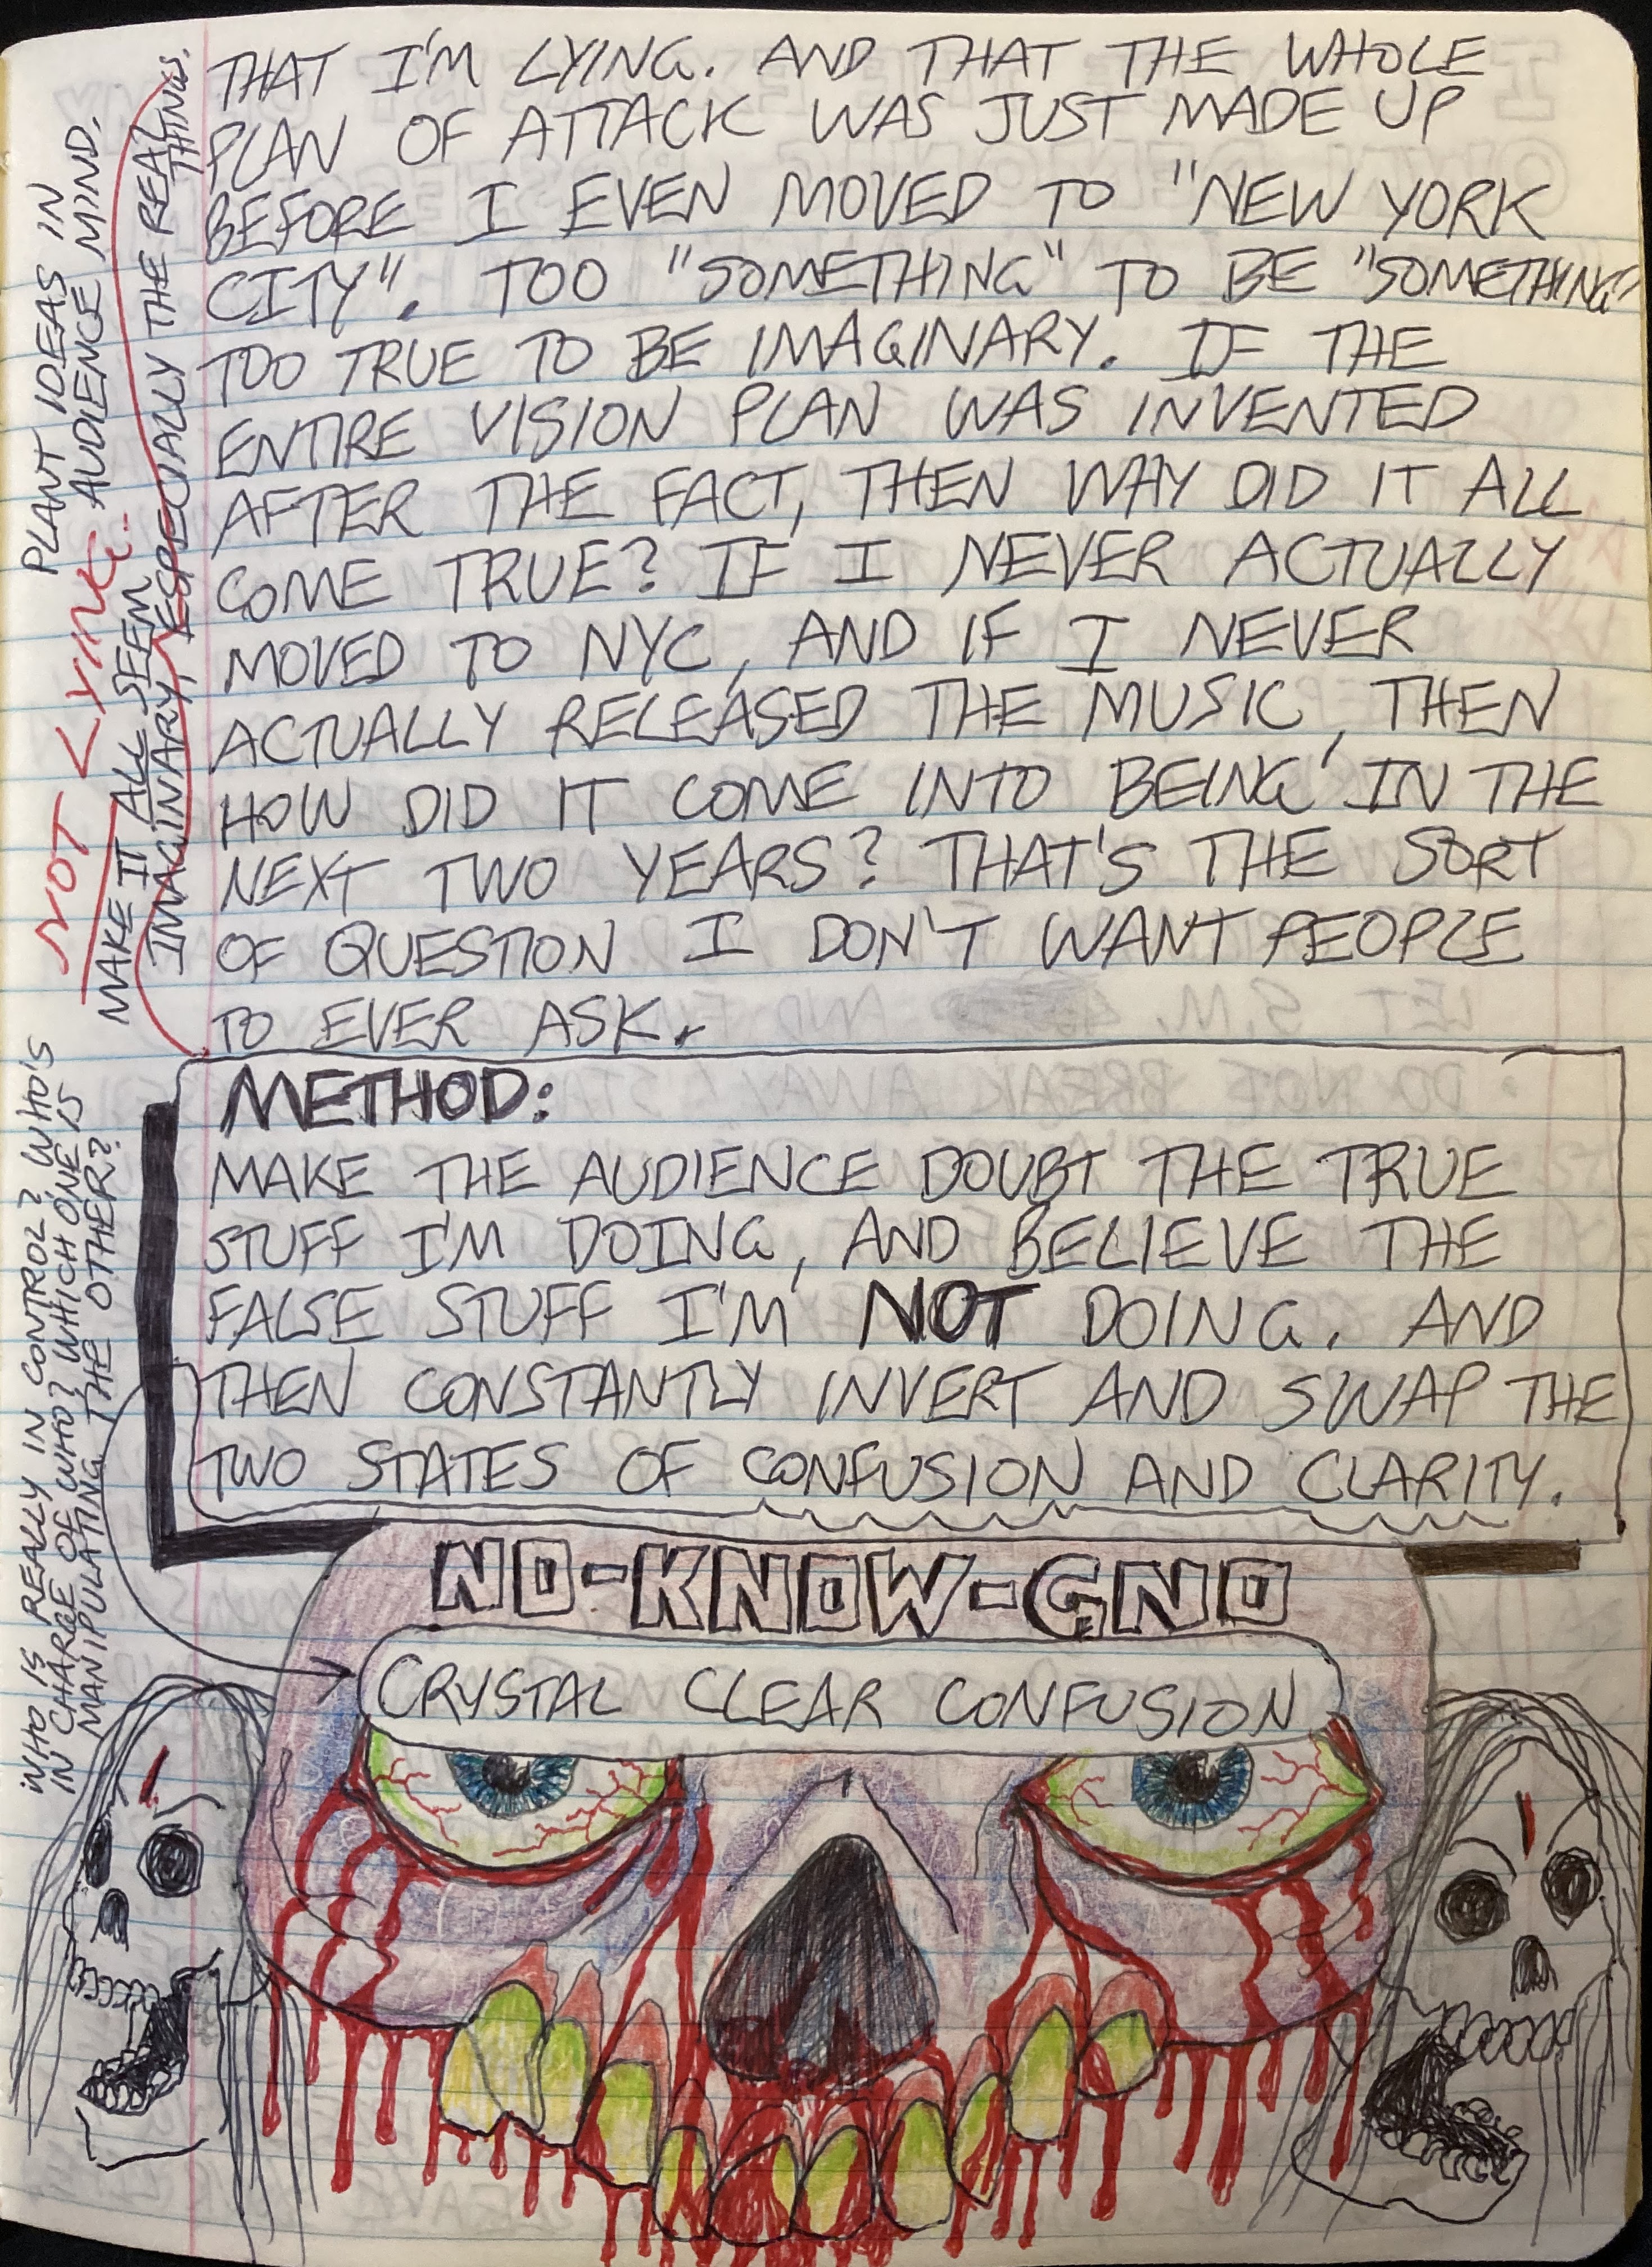 THAT I'M LYING. AND THAT THE WHOLE
PLAN OF ATTACK WAS JUST MADE UP
BEFORE I EVEN MOVED TO "NEW YORK
CITY". TOO "SOMETHING" TO BE "SOMETHING"
TOO TRUE TO BE IMAGINARY. IF THE
ENTIRE VISION PLAN WAS INVENTED
AFTER THE FACT, THEN WHY DID IT ALL
COME TRUE? IF I NEVER ACTUALLY
MOVED TO NYC, AND IF I NEVER
ACTUALLY RELEASED THE MUSIC, THEN
HOW DID IT COME INTO BEING IN THE
NEXT TWO YEARS? THAT'S THE SORT
OF QUESTION I DON'T WANT PEOPLE
TO EVER ASK.
PLANT IDEAS IN
AUDIENCE MIND.
NOT LYING:
MAKE IT ALL SEEM
IMAGINARY, ESPECIALLY THE REAL
THINGS.
METHOD:
MAKE THE AUDIENCE DOUBT THE TRUE
STUFF I'M DOING, AND BELIEVE THE
FALSE STUFF I'M NOT DOING. AND
THEN CONSTANTLY INVERT AND SWAP THE
TWO STATES OF CONFUSION AND CLARITY.
WHO IS REALLY IN CONTROL? WHO'S
IN CHARGE OF WHO? WHICH ONE IS
MANIPULATING THE OTHER?
NO-KNOW-GNO
CRYSTAL CLEAR CONFUSION